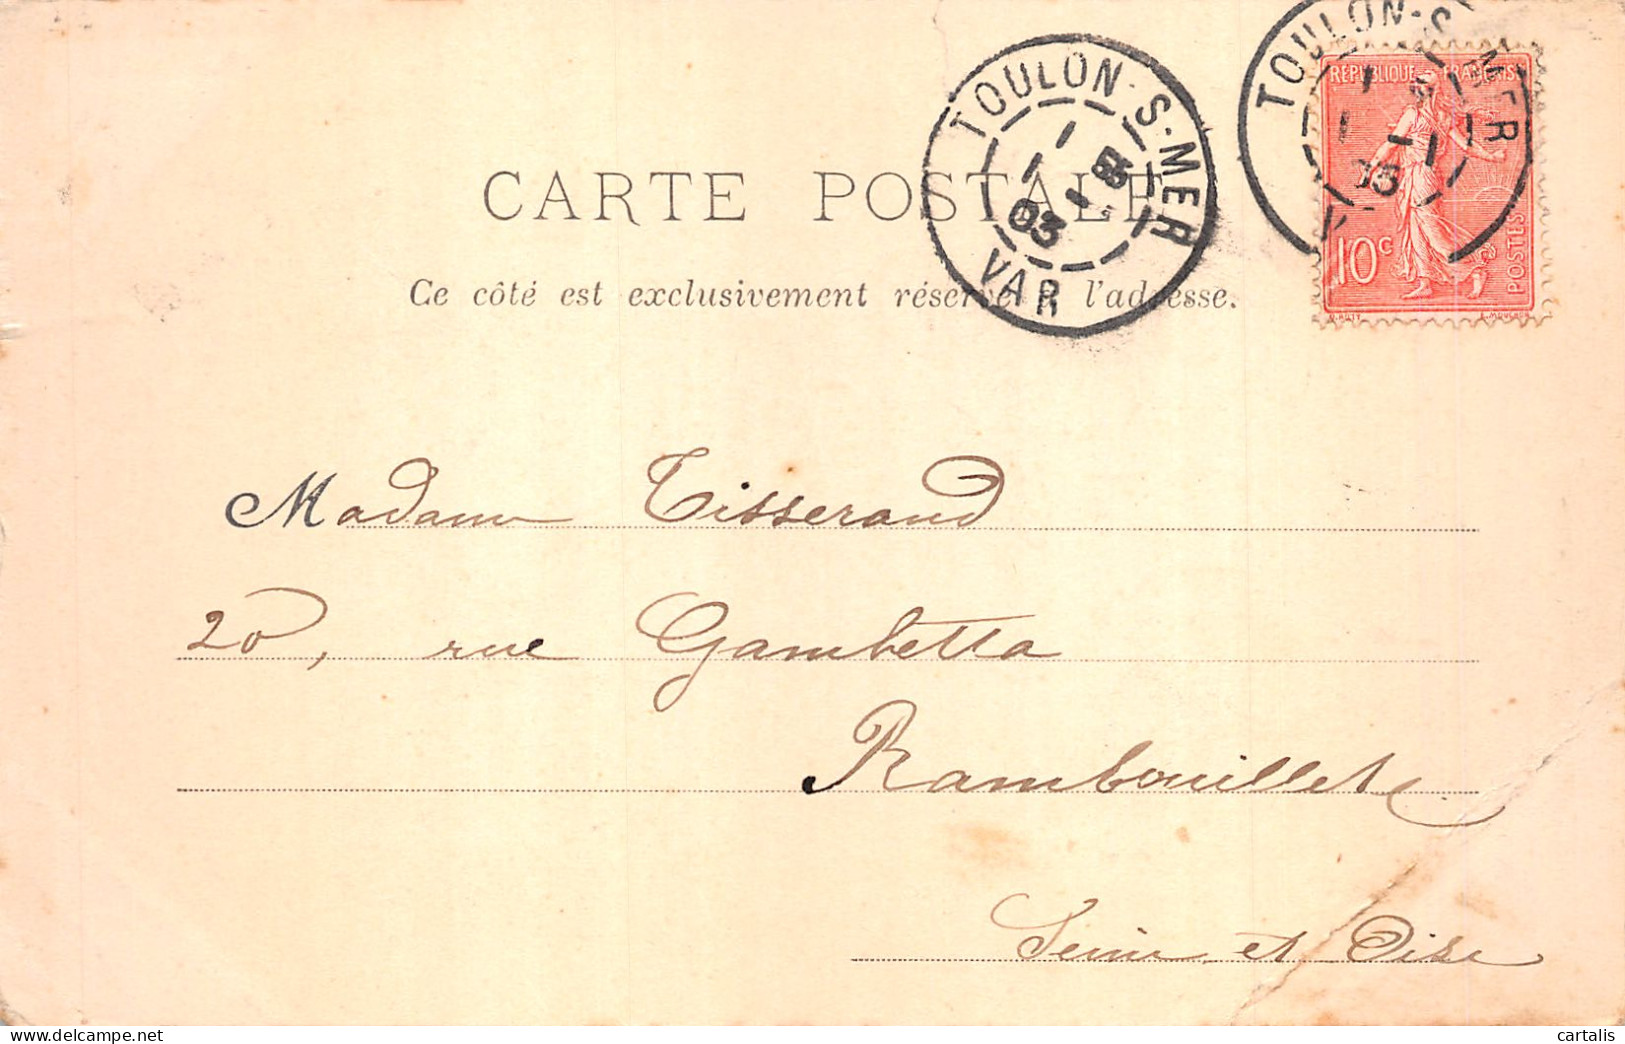 TOULON-S-MER
1 - 1
03
VAR
TOULON-S-MER
REPUBLIQUE FRANÇAISE
10c
POSTES
CARTE POSTALE
Ce côté est exclusivement réservé à l'adresse.
Madame Tisserand
20, rue Gambetta
Rambouillet
Seine et Oise
cartalis